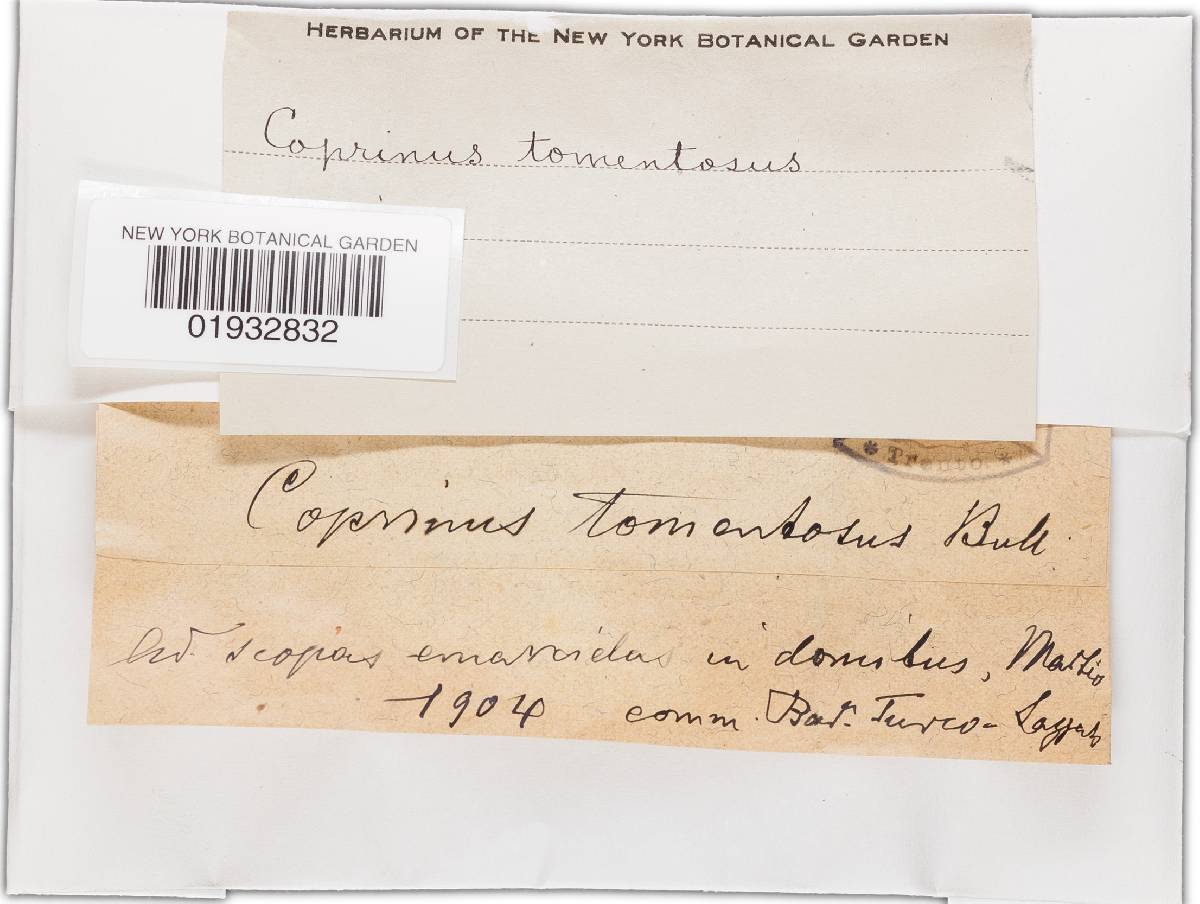 HERBARIUM OF THE NEW YORK BOTANICAL GARDEN
Coprinus tomentosus
NEW YORK BOTANICAL GARDEN
01932832
* Trento *
Coprinus tomentosus Bull.
Ad scopas emarcidas in domibus, Martio
1904 comm. Bar. Turco-